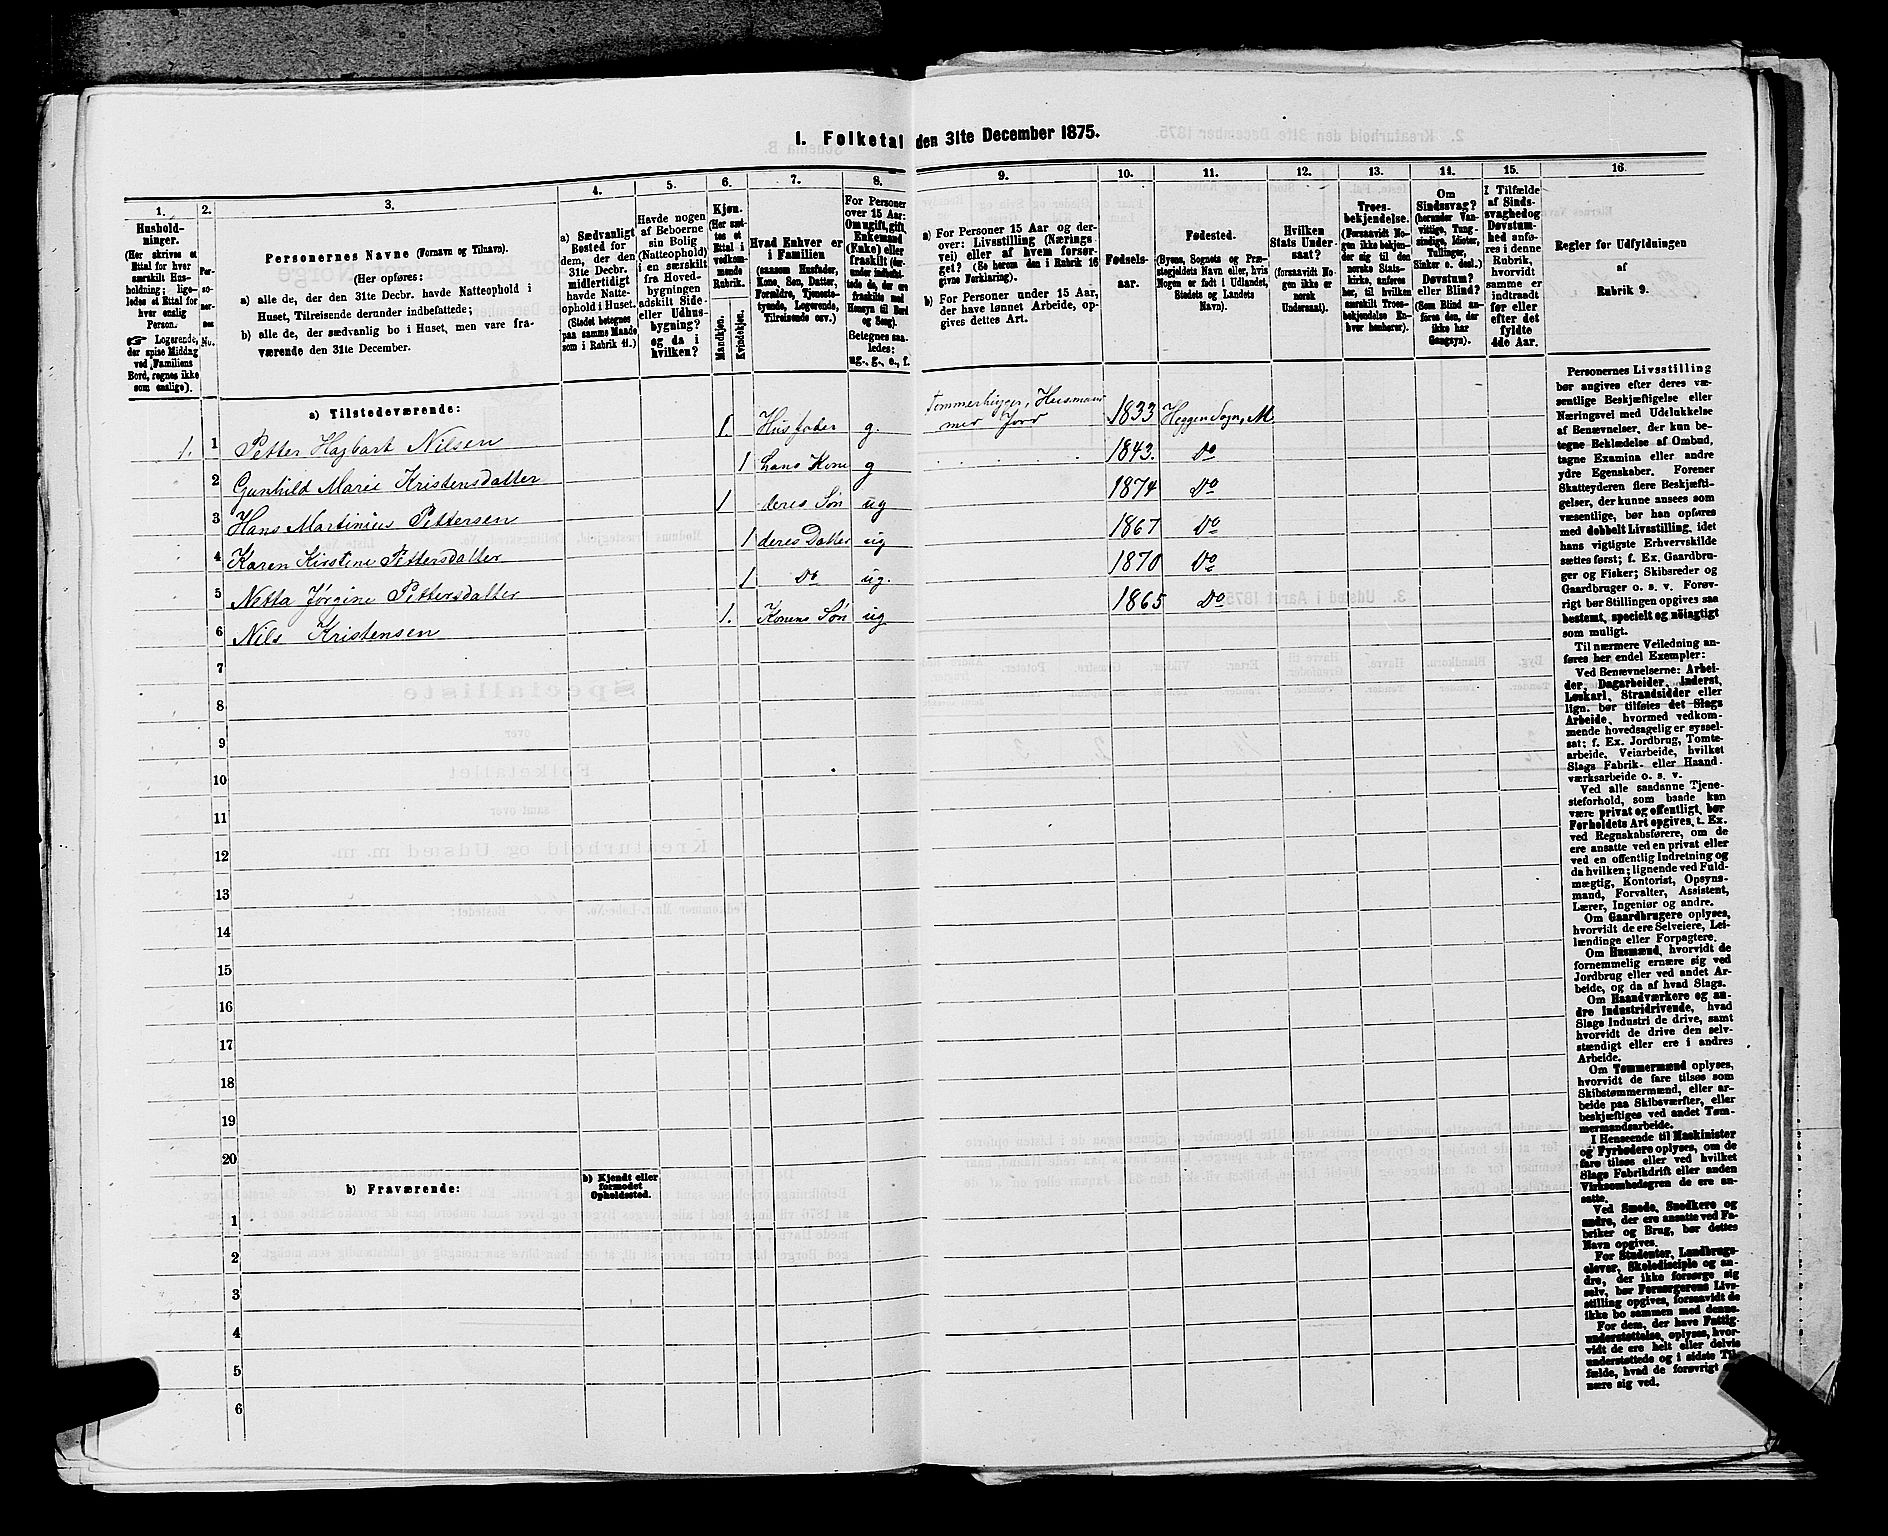 1. Folketal den 31te December 1875.
1. 2. 3. 4. 5. 6. 7. 8. 9. 10. 11. 12. 13. 14. 15. 16.
Hushold-
ninger.
(Her skrives et
Ettal for hver
særskilt Hus-
holdning; lige-
ledes et Ettal for
hver enslig
Person.
☞ Logerende,
der spise Middag
ved Familiens
Bord, regnes ikke
som enslige).
Per-
so-
ner-
nes
No.
Personernes Navne (Fornavn og Tilnavn).
(Her opføres:
a) alle de, der den 31te Decbr. havde Natteophold i
Huset, Tilreisende derunder indbefattede;
b) alle de, der sædvanlig bo i Huset, men vare fra-
værende den 31te December.
a) Sædvanligt
Bosted for
dem, der den
31te Decbr.
midlertidigt
havde Natte-
ophold i Huset.
(Stedet betegnes
paa samme Maade
som i Rubrik 11.)
Havde nogen
af Beboerne
sin Bolig
(Natteophold)
i en særskilt
fra Hoved-
bygningen
adskilt Side-
eller Udhus-
bygning?
og da i
hvilken?
Kjøn.
(Her sæt-
tes et
Ettal i
vedkom-
mende
Rubrik.
Mandkjøn.
Kvindekjøn.
Hvad Enhver er
i Familien
(saasom Husfader,
Kone, Søn, Datter,
Forældre, Tjeneste-
tyende, Logerende,
Tilreisende osv.)
For Personer
over 15 Aar:
Om ugift, gift,
Enkemand
(Enke) eller
fraskilt (der-
under indbefat-
tede de, der ere
fraskilte med
Hensyn til Bord
og Seng).
Betegnes saa-
ledes:
ug., g., e., f.
a) For Personer 15 Aar og der-
over: Livsstilling (Nærings-
vei) eller af hvem forsør-
get? (Se herom den i Rubrik 16
givne Forklaring).
b) For Personer under 15 Aar,
der have lønnet Arbeide, op-
gives dettes Art.
Fødsels-
aar.
Fødested.
(Byens, Sognets og Præ-
stegjeldets Navn eller, hvis
Nogen er født i Udlandet,
Stedets og Landets
Navn).
Hvilken
Stats Under-
saat?
(forsaavidt No-
gen ikke er
norsk
Undersaat).
Troes-
bekjendelse.
(Forsaavidt No-
gen ikke bekjen-
der sig til den
norske Stats-
kirke, anføres
her, til hvilken
særskilt Troes-
bekjendelse En-
hver henhører).
Om
Sindssvag?
(herunder Van-
vittige, Tung-
sindige, Idioter,
Tullinger,
Sinker o. desl.)
Døvstum?
eller Blind?
(Som Blind an-
føres den, der
ikke har
Gangsyn).
I Tilfælde
af Sinds-
svaghed og
Døvstum-
hed anfø-
res i denne
Rubrik,
hvorvidt
samme er
indtraadt
før eller
efter det
fyldte
4de Aar.
Regler for Udfyldningen
af
Rubrik 9.
a) Tilstedeværende:
1. 1 Petter Hagbart Nilsen 1. Husfader g. Tømmerhugger, Husmand med Jord 1833 Heggen Sogn, M.
2 Gunhild Marie Kristensdatter 1 hans Kone g 1843. Do
3 Hans Martinius Pettersen 1 deres Søn ug 1874 Do
4 Karen Kirstine Pettersdatter 1 deres Datter ug 1867 Do
5 Netta Jørgine Pettersdatter 1 Do ug. 1870 Do
6 Nils Kristensen 1. Konens Søn ug 1865 Do
7
8
9
10
11
12
13
14
15
16
17
18
19
20
b) Fraværende:
b) Kjendt eller
formodet
Opholdssted.
1
2
3
4
5
6
Personernes Livsstilling
bør angives efter deres væ-
sentlige Beskjæftigelse eller
Næringsvei med Udelukkelse
af Benævnelser, der kun be-
tegne Beklædelse af Ombud,
tagne Examina eller andre
ydre Egenskaber. Forener
Skatteyderen flere Beskjæfti-
gelser, der kunne ansees som
væsentlige, bør han opføres
med dobbelt Livsstilling, idet
hans vigtigste Erhvervskilde
sættes først; f. Ex. Gaardbru-
ger og Fisker; Skibsreder og
Gaardbruger o. s. v. Forøv-
rigt bør Stillingen opgives saa
bestemt, specielt og nöiagtigt
som muligt.
Til nærmere Veiledning an-
føres her endel Exempler:
Ved Benævnelserne: Arbei-
der, Dagarbeider, Inderst,
Løskarl, Strandsidder eller
lign. bør tilføies det Slags
Arbeide, hvormed vedkom-
mende hovedsagelig er syssel-
sat; f. Ex. Jordbrug, Tomte-
arbeide, Veiarbeide, hvilket
Slags Fabrik- eller Haand-
værksarbeide o. s. v.
Ved alle saadanne Tjene-
steforhold, som baade kan
være privat og offentligt, bør
Forholdets Art opgives, t. Ex.
ved Regnskabsførere, om de
ere ansatte ved en privat eller
ved en offentlig Indretning og
da hvilken; lignende ved Fuld-
mægtig, Kontorist, Opsyns-
mand, Forvalter, Assistent,
Lærer, Ingeniør og andre.
Om Gaardbrugere oplyses,
hvorvidt de ere Selveiere, Lei-
lændinge eller Forpagtere.
Om Husmænd, hvorvidt de
fornemmelig ernære sig ved
Jordbrug eller ved andet Ar-
beide, og da af hvad Slags.
Om Haandværkere og an-
dre Industridrivende, hvad
Slags Industri de drive, samt
hvorvidt de drive den selv-
stændigt eller ere i andres
Arbeide.
Om Tømmermænd oplyses,
hvorvidt de fare tilsøs som
Skibstømmermænd, eller ar-
beide paa Skibsværfter, eller
beskjæftiges ved andet Tøm-
mermandsarbeide.
I Henseende til Maskinister
og Fyrbødere oplyses, om de
fare tilsøs eller ved hvilket
Slags Fabrikdrift eller anden
Virksomhedsgren de ere an-
satte.
Ved Smede, Snedkere og
andre, der ere ansatte ved Fa-
briker og Brug, bør dettes
Navn opgives.
For Studenter, Landbrugs-
elever, Skoledisciple og an-
dre, der ikke forsørge sig
selv, bør Forsørgerens Livs-
stilling opgives, forsaavidt de
ikke bo sammen med denne.
For dem, der have Fattig-
understøttelse, oplyses, hvor-
vidt de ere helt eller delvis
understøttede og i sidste Til-
fælde, hvad de forøvrigt er-
nære sig ved.